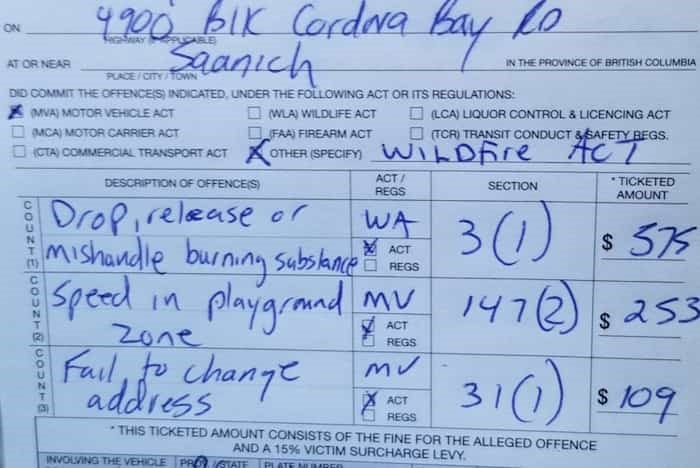 ON 4900 blk Cordova Bay RD
HIGHWAY (IF APPLICABLE)
AT OR NEAR Saanich IN THE PROVINCE OF BRITISH COLUMBIA
PLACE / CITY / TOWN
DID COMMIT THE OFFENCE(S) INDICATED, UNDER THE FOLLOWING ACT OR ITS REGULATIONS:
(MVA) MOTOR VEHICLE ACT (WLA) WILDLIFE ACT (LCA) LIQUOR CONTROL & LICENCING ACT
(MCA) MOTOR CARRIER ACT (FAA) FIREARM ACT (TCR) TRANSIT CONDUCT & SAFETY REGS.
(CTA) COMMERCIAL TRANSPORT ACT OTHER (SPECIFY) WILDfire ACT
DESCRIPTION OF OFFENCE(S) ACT / REGS SECTION * TICKETED AMOUNT
COUNT (1) Drop, release or WA 3(1) $ 575
mishandle burning substance ACT
REGS
COUNT (2) Speed in playground MV 147(2) $ 253
zone ACT
REGS
COUNT (3) Fail to change MV 31(1) $ 109
address ACT
REGS
* THIS TICKETED AMOUNT CONSISTS OF THE FINE FOR THE ALLEGED OFFENCE
AND A 15% VICTIM SURCHARGE LEVY.
INVOLVING THE VEHICLE PROV/STATE PLATE NUMBER